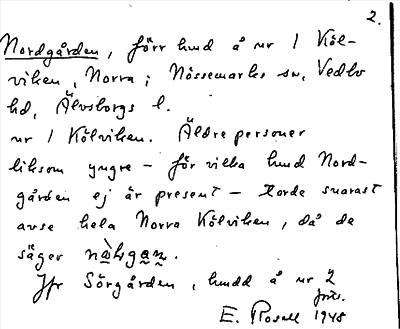 2.
Nordgården, förr hmd å nr 1 Köl-
viken, Norra; Nössemarks sn, Vedbo
hd, Älvsborgs l.
nr 1 Kölviken. Äldre personer
liksom yngre – för vilka hmd Nord-
gården ej är present – torde snarast
avse hela Norra Kölviken, då de
säger
Jfr Sörgården, hmdd å nr 2
E. Rosell 1948